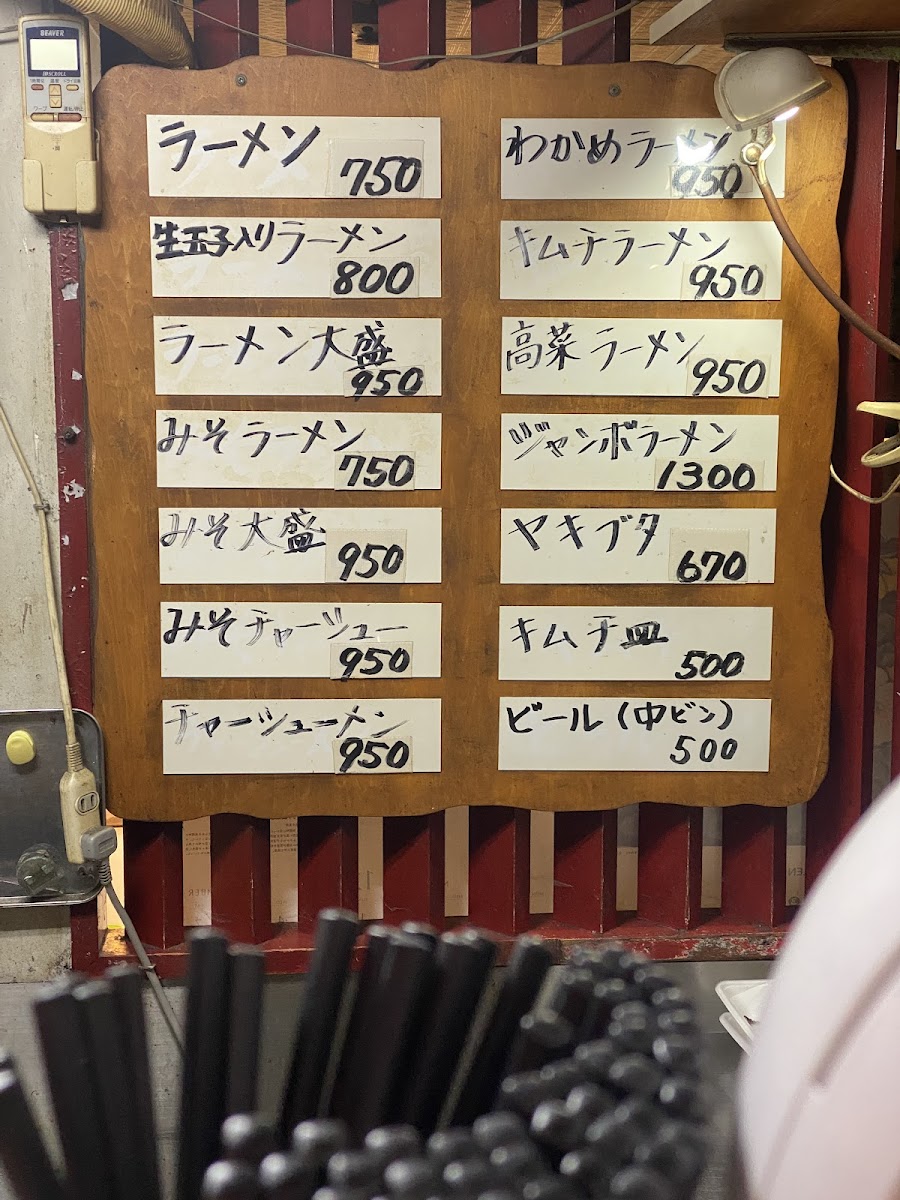 BEAVER
ラーメン
750
生玉子入りラーメン
800
ラーメン大盛
950
みそラーメン
750
みそ大盛
950
みそチャーシュー
950
チャーシューメン
950
わかめラーメン
950
キムチラーメン
950
高菜ラーメン
950
ジャンボラーメン
1300
ヤキブタ
670
キムチ皿
500
ビール(中ビン)
500